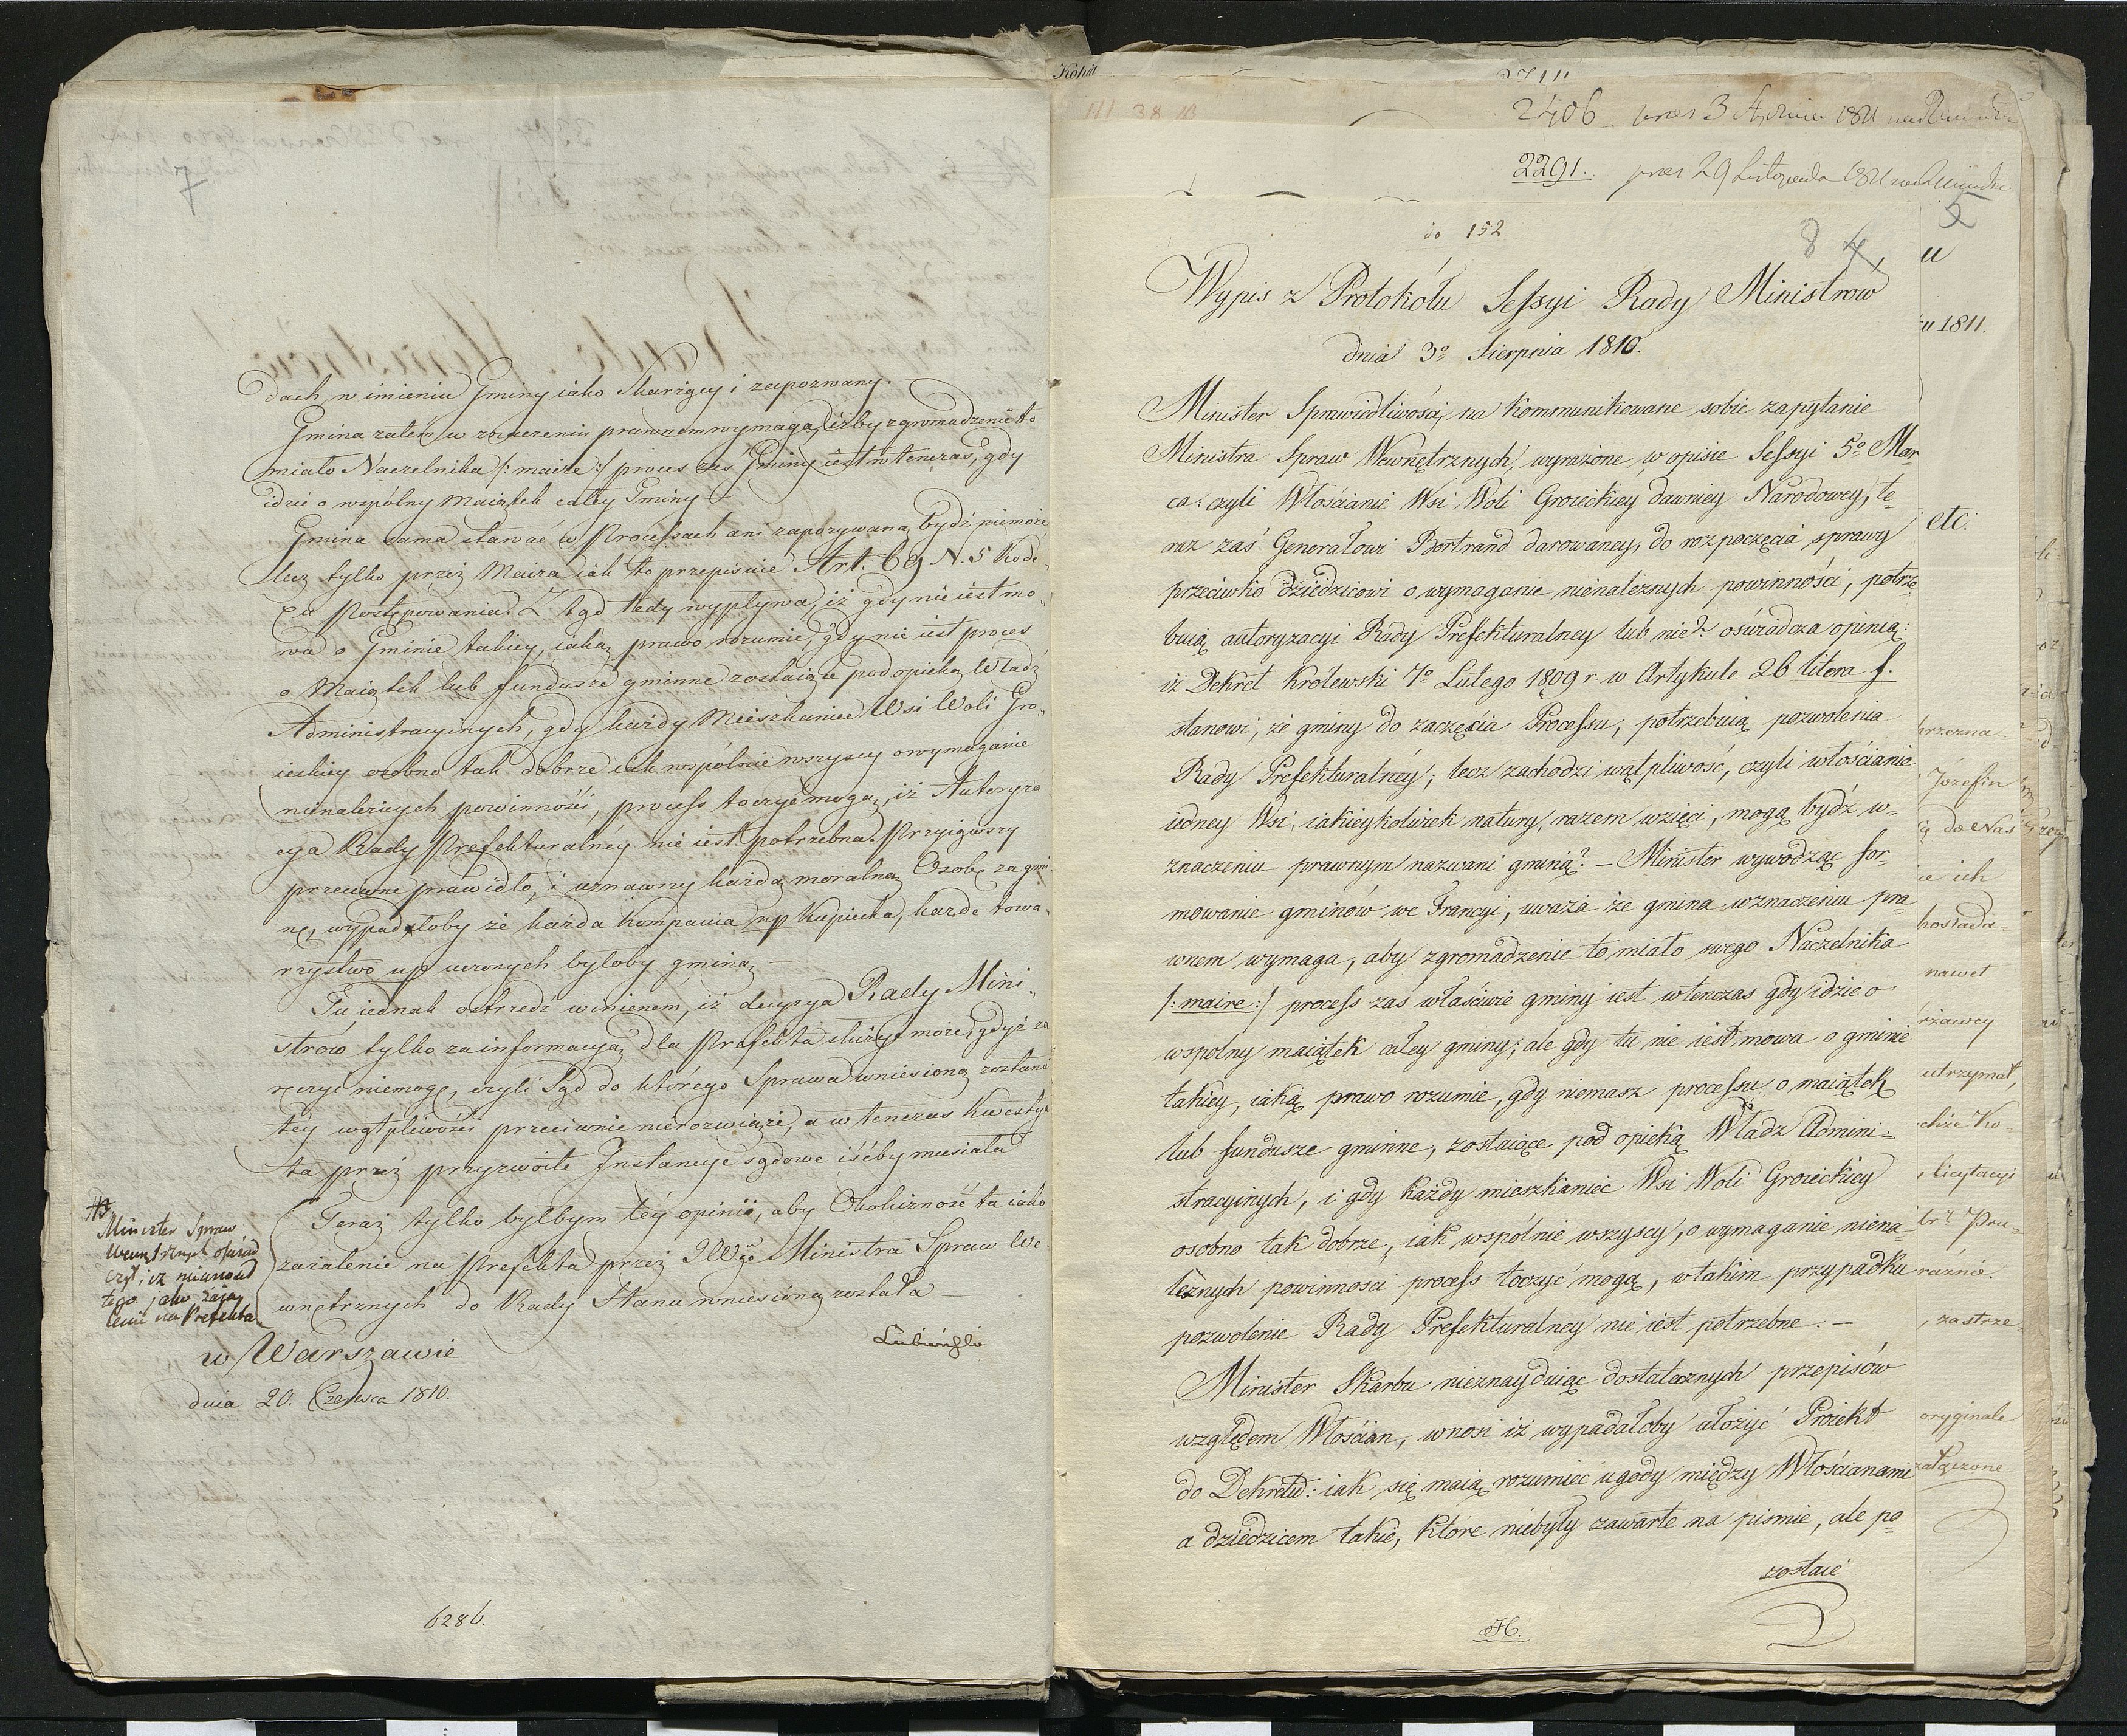 7
dach, w imieniu Gminy iako Skarżący i zapozwany.
Gmina zatém w znaczeniu prawnem wymaga, iżby zgromadzenie to
miało Naczelnika /: maire :/ proces zaś Gminy iest w tenczas, gdy
idzie o wspólny Maiątek całey Gminy
Gmina sama stawać w Processach ani zapozywaną bydź niemoże
lecz tylko przez Maira iak to przepisuie Art. 69 N. 5 Kode-
xu Postępowania. Z tąd tedy wypływa, iż gdy nie iest mo-
wa o Gminie takiey, iaką prawo rozumie, gdy nie iest proces
o Maiątek lub fundusze gminne zostaiące pod opieką Władz
Administracyinych, gdy każdy Mieszkaniec Wsi Woli Gro-
ieckiey osobno tak dobrze iak wspólnie wszyscy o wymaganie
nienależnych powinności, process toczyć mogą, iż Autoryza
cya Rady Prefekturalnéy nie iest potrzebna. Przyiąwszy
przeciwne prawidło, i uznawszy każdą moralną Osobę za gmi-
nę, wypadałoby że każda Kompania np Kupiecka, każde towa-
rzystwo np uczonych byłoby gminą —
Tu iednak ostrzedz winienem, iż decyzya Rady Mini-
strów tylko za informacyą dla Prefekta służyć może, gdyż za
ręczyć niemogę, czyli Sąd do którego Sprawa wniesioną zostanie
téy wątpliwości przeciwnie nierozwiąże, a w tenczas Kwestya
ta przez przyzwoite Instancye sądowe iśćby musiała
Teraz tylko byłbym téy opinii, aby Okoliczność ta iako
zażalenie na Prefekta przez JWgo Ministra Spraw We-
wnętrznych do Rady Stanu wniesioną została —
Minister Spraw
Wewnętrznych oświad
czył, iż niewnosił
tego jako zaża
lenie na Prefekta
Łubieński
w Warszawie
dnia 20. Czerwca 1810.
6286.
2406 prez 3 1811
2291. prez 29 Listopada 1811
5
do 152
8 4
Wypis z Protokółu Sessyi Rady Ministrów
dnia 3º Sierpnia 1810.
Minister Sprawiedliwości, na kommunikowane sobie zapytanie
Ministra Spraw Wewnętrznych, wyrażone w opisie Sessyi 5º Mar-
ca: czyli Włościanie Wsi Woli Groieckiey dawniey Narodowey, te-
raz zaś Generałowi Bertrand darowaney, do rozpoczęcia sprawy
przeciwko dziedzicowi o wymaganie nienależnych powinności, potrze-
buią autoryzacyi Rady Prefekturalney lub nie? oświadcza opinią:
iż Dekret Królewski 7º Lutego 1809 r. w Artykule 26 litera f.
stanowi, że gminy do zaczęcia Processu, potrzebuią pozwolenia
Rady Prefekturalnéy; lecz zachodzi wątpliwość, czyli włościanie
iedney Wsi, iakieykolwiek natury, razem wzięci, mogą bydź w-
znaczeniu prawnym nazwani gminą? — Minister wywodząc for-
mowanie gminów we Francyi, uważa że gmina w znaczeniu pra-
wnem wymaga, aby zgromadzenie to miało swego Naczelnika
/: maire :/ process zaś właściwie gminy iest wtenczas gdy idzie o
wspolny maiątek całey gminy; ale gdy tu nie iest mowa o gminie
takiey, iaką prawo rozumie, gdy niemasz processu o maiątek
lub fundusze gminne, zostaiące pod opieką Władz Admini-
stracyinych, i gdy każdy mieszkaniec Wsi Woli Groieckiey
osobno tak dobrze, iak wspólnie wszyscy, o wymaganie niena-
leżnych powinności process toczyć mogą, w takim przypadku
pozwolenie Rady Prefekturalney nie iest potrzebne. —
Minister Skarbu nieznayduiąc dostatecznych przepisów
względem Włościan, wnosi iż wypadałoby ułożyć Proiekt
do Dekretu: iak się maią rozumieć ugody między Włościanami
a dziedzicem takie, które niebyły zawarte na pismie, ale po-
zostaie
u
1811.
etc.
Józefin
do Nas
ie ich
nawet
utrzymał,
licytacyi
zastrze-
oryginale
załączone